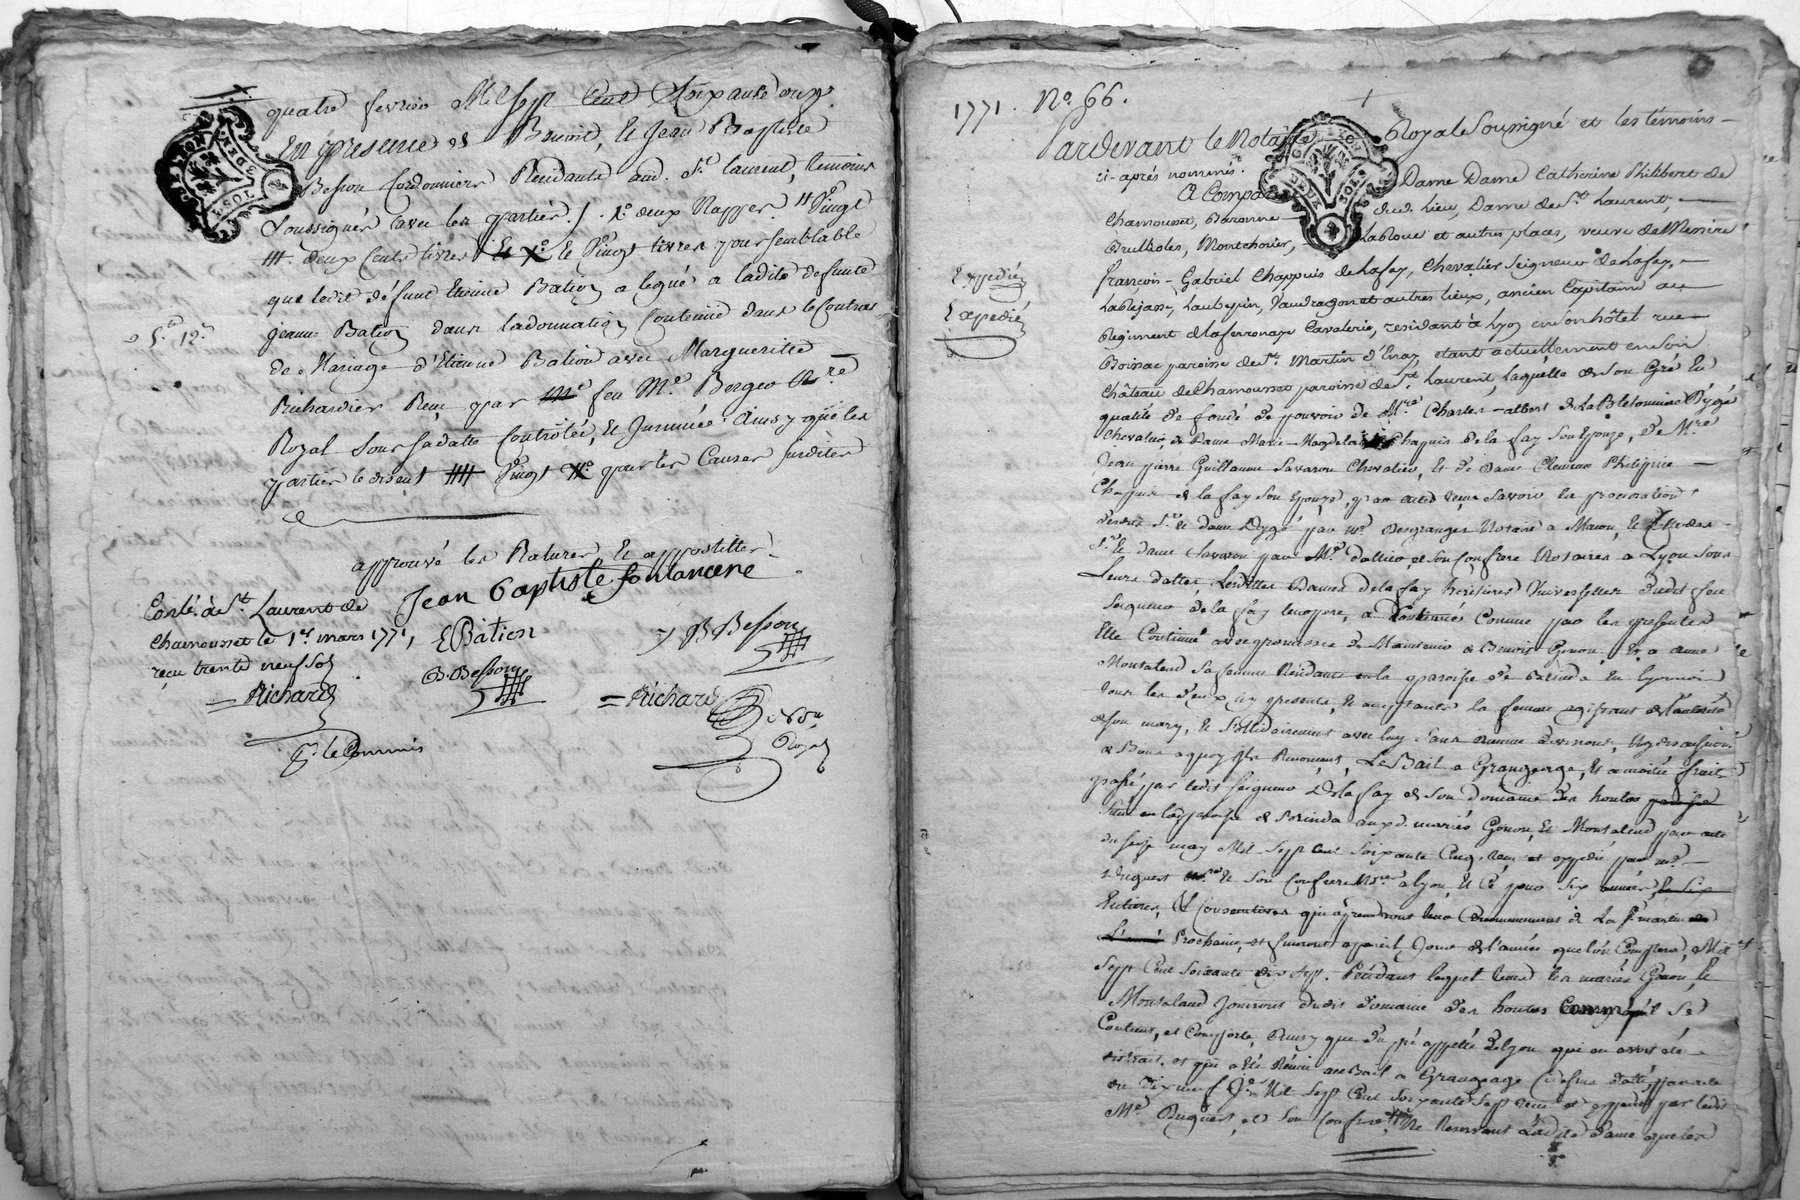 quatre fevrier Mil sept Cent Soixante onze
En presence de Benoit, et Jean Baptiste
Besson Cordonniers Residants aud. St. laurent, temoins
Soussignés avec les parties ./. 1o. deux Nappes. # Vingt
deux Cents livres Et Xo. le Vingt livres pour semblable
que ledit défunt Etienne Bation a legué a ladite defunte
jeanne Bation dans la donnation Contenue dans le Contrat
de Mariage d'Etienne Bation avec Marguerite
Richardier Reçu par feu Me. Berger Nre.
Royal Sous sa datte Controlée, et Insinuée Ainsy que les
parties le disent Vingt pour les Causes susdites
5.tt 12.s
approuvé les Ratures et appostilles.
Jean Baptiste fontanene
Conlé. à St. Laurent de
Chamousset le 1er. mars 1771,
reçu trente neuf sols
EBâtion
JB Besson
B. Besson
Richard
Richard
Nore.
Royal
p. le Commis
1771. No. 66.
Pardevant le Notaire Royal Soussigné et les témoins
ci-aprés nommés.
A Comparu Dame Dame Catherine Philibert de
Chamousset, Baronne dud. Lieu, Dame de St. Laurent,
Brullioles, Montchonier, Laroue et autres places, veuve de Messire
françois-Gabriel Chappuis de Lafay, Chevalier Seigneur de Lafay,
Laubepin, Vaudragon et autres lieux, ancien Capitaine au
Expédié
Expedié
Regiment de la ferronaye Cavalerie, residant à Lyon en son hôtel rue
Boissac paroisse de St. Martin d'Enay, etant actuellement en son
Château de Chamousset paroisse de St. Laurent, Laquelle de son Gré En
qualité de fondé de pouvoir de Mre. Charles-albert de La Bletonniere D'ygé
Chevalier, de Dame Marie Magdelaine Chapuis de la fay son Epouze, de Mre
Jean pierre Guillaume Savaron Chevalier, Et de Dame Clemence Philippine
Chapuis de la fay son Epouze, par acte savoir la procuration
desdits Sr. Et dame Dygé par Me. Desgranges Notaire a Macon, Et Celle des
Sr. Et dame Savaron par Me. dalier, et son Confrere Notaires a Lyon Sous
Leurs dattes, Lesdittes Dames de la fay heritieres Universelles dudit feu
Seigneur de la fay leur pere, a Continué Comme par les presentes
Elle Continue avec promesse de Maintenir a Benoit Gonon, Et a anne
Monsaland Sa femme Residants en la paroisse de Brinda En lyonnois
tous les deux icy presents, Et acceptants la femme agissant de l'autorité
de son mary, Et Solidairement avec luy Sans division, Ny discussion
a quoy Ils Renoncent, Le Bail a Grangeage, Et a moitié fruit
passé par ledit Seigneur de la fay de Son domaine des houles
Situé en lad. paroisse de Brinda auxd. mariés Gonon, Et Monsaland par acte
du seize may Mil Sept Cent Soixante Cinq, reçu et expedié par Me.
Duguest Et Son Confrere Nres. a lyon, Et Ce pour Six années
Entieres, Et Consecutives qui prendront leur Commencement a La St. martin
Prochaine, et finiront a pareil Jour de l'année que l'on Comptera, Mil
Sept Cent Soixante dix sept. Pendant lequel tems les mariés Gonon, Et
Monsaland Jouiront dudit domaine des houles Comme il Se
Contient, et Comporte, Ainsy que du pré appellé de lyon qui en avoit été
distrait et qui a été Réuni au Bail a Grangeage
du dix neuf Mil Sept Cent Soixante Sept reçu et expedié par ledit
Me. Duguest, et Son Confrere, Se Reservant Ladite dame que les